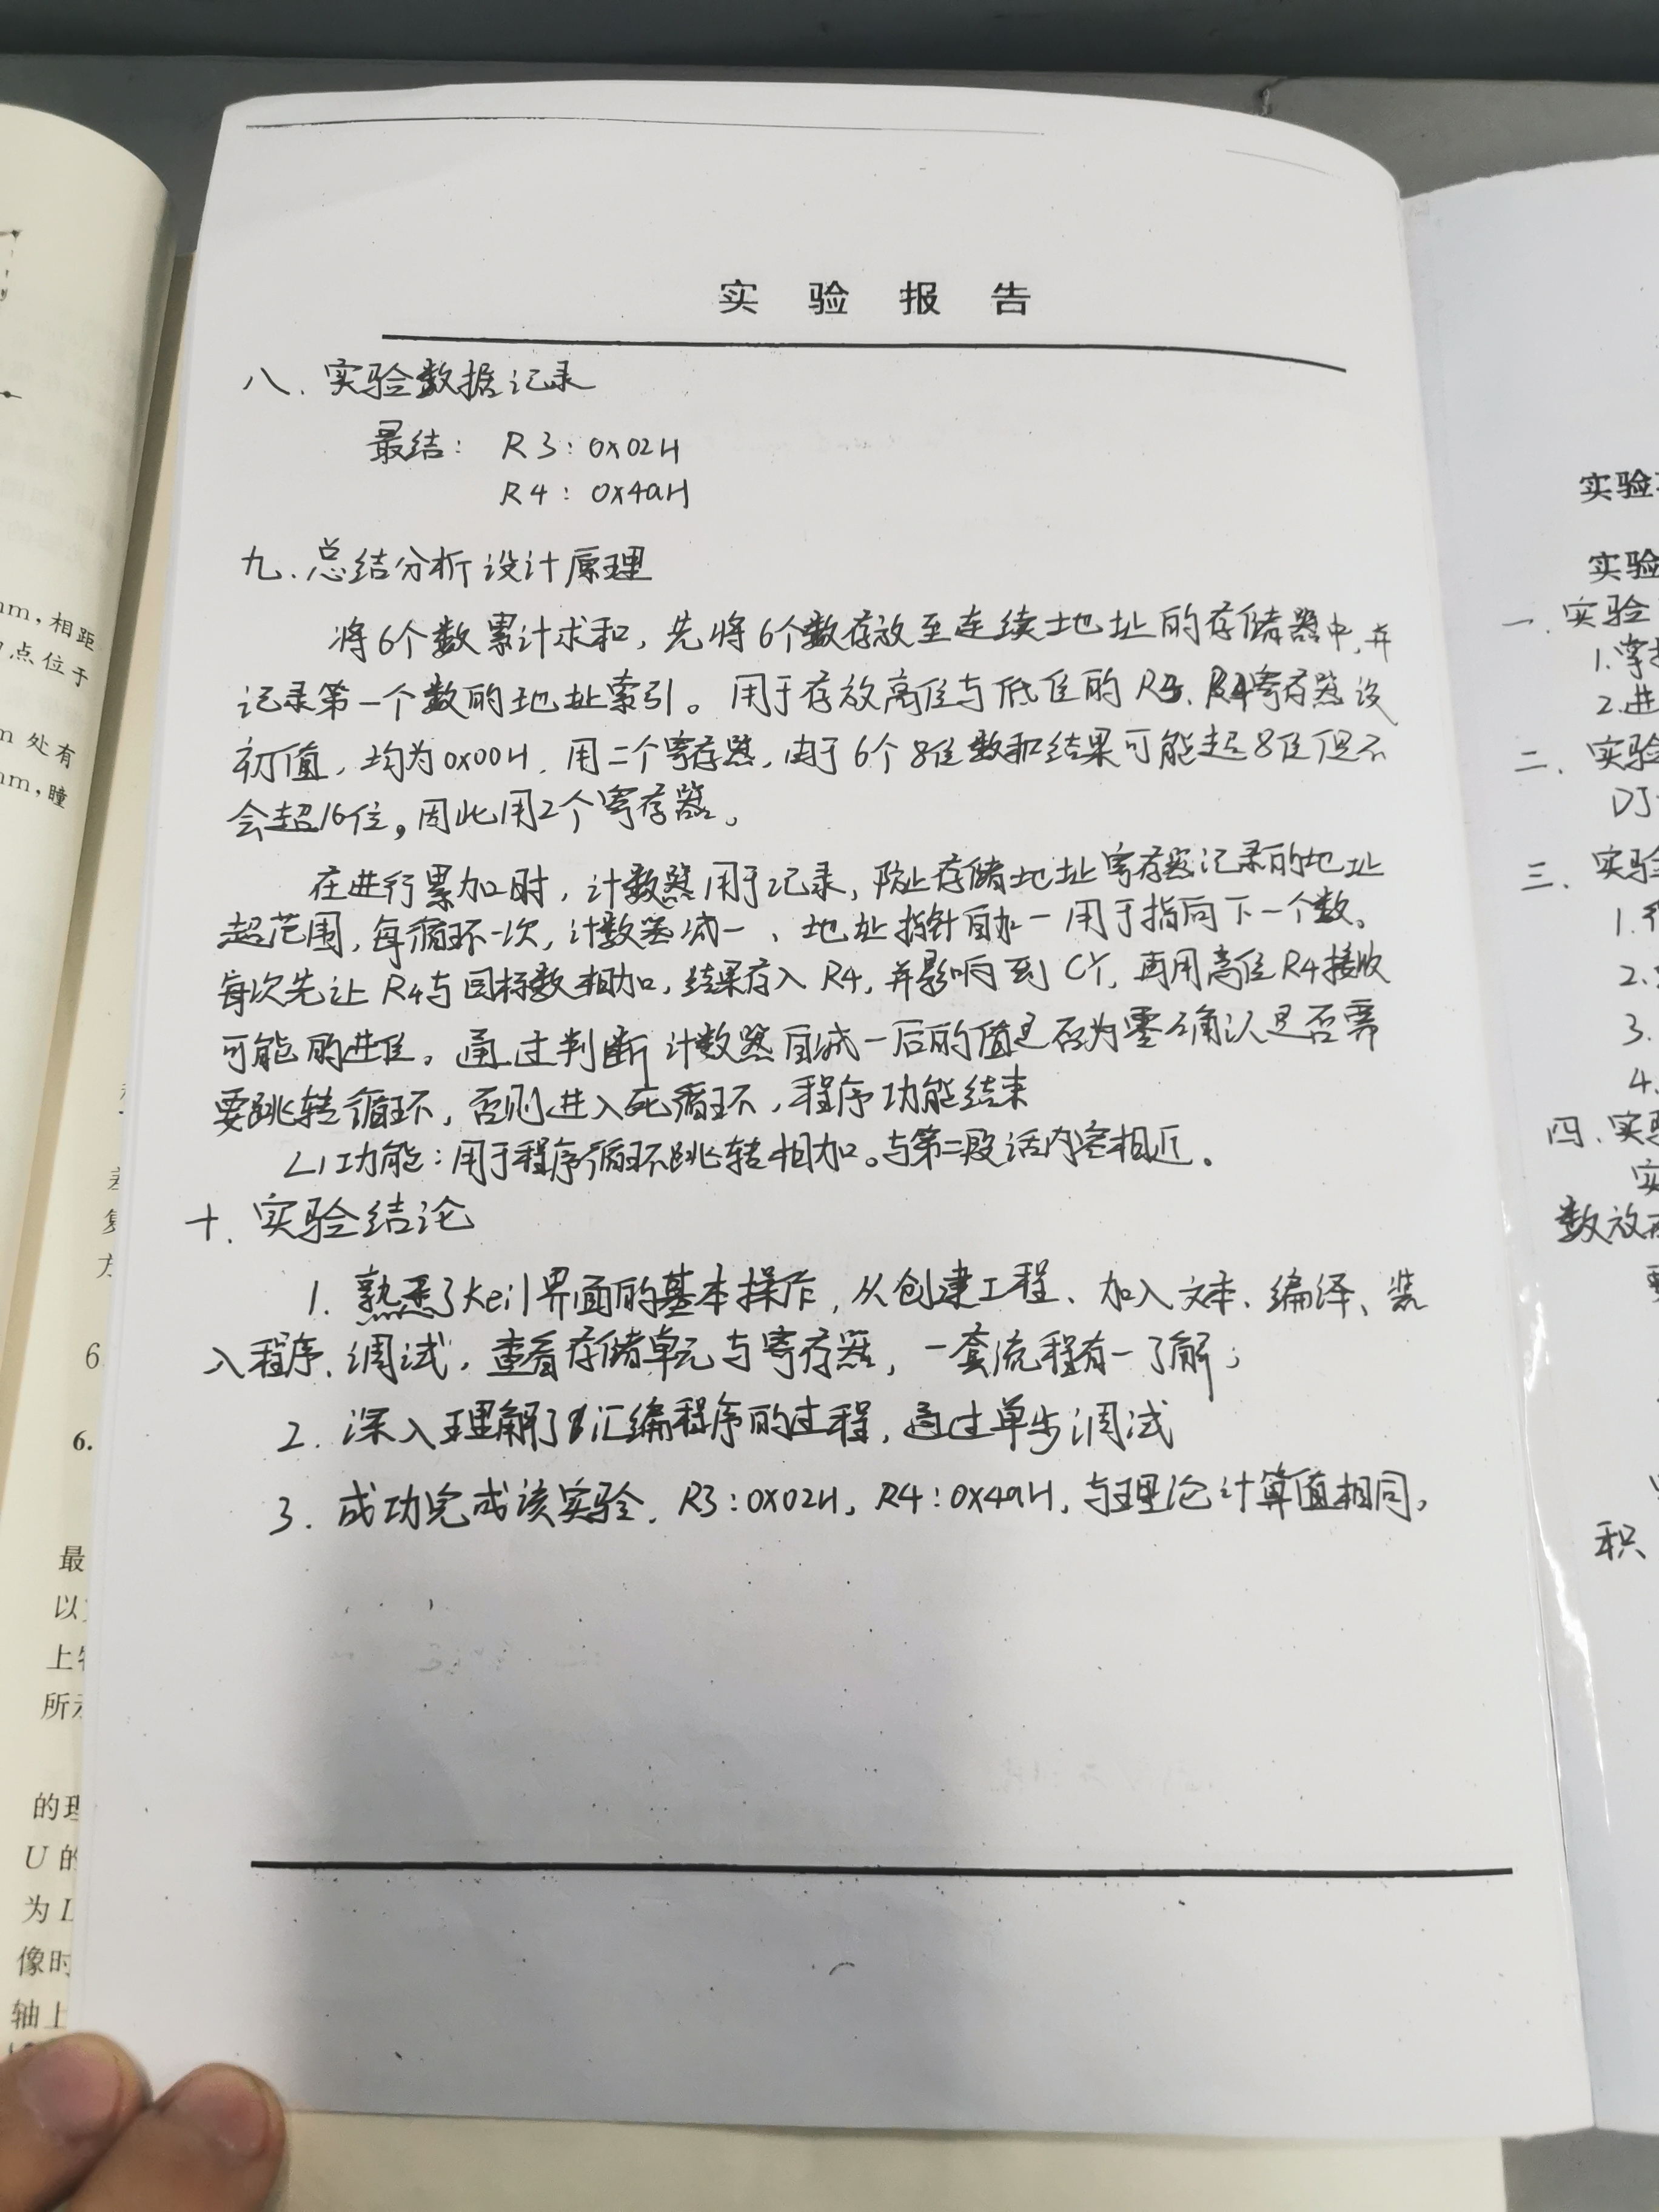 实验报告
八、实验数据记录
最结: R3:0x02H
R4:0x4aH
九、总结分析设计原理
将6个数累计求和,先将6个数存放至连续地址的存储器中,并
记录第一个数的地址索引。用于存放高位与低位的R3、R4寄存器设
初值,均为0x00H,用二个寄存器,由于6个8位数和结果可能超8位但不
会超16位,因此用2个寄存器。
在进行累加时,计数器用于记录,防止存储地址寄存器记录的地址
超范围,每循环一次,计数器减一、地址指针自加一用于指向下一个数。
每次先让R4与目标数相加,结果存入R4,并影响到CY,再用高位R4接收
可能的进位。通过判断计数器自减一后的值是否为零确认是否需
要跳转循环,否则进入死循环,程序功能结束
L1功能:用于程序循环跳转相加。与第二段话内容相近。
十、实验结论
1. 熟悉了Keil界面的基本操作,从创建工程、加入文本、编译、装
入程序、调试,查看存储单元与寄存器,一套流程有一了解;
2. 深入理解了汇编程序的过程,通过单步调试
3. 成功完成该实验,R3:0x02H,R4:0x4aH,与理论计算值相同。
mm,相距
点位于
处有
mm,瞳
6
6.
最
以
上
所
的理
U的
为L
像时
轴上
实验
实验
一、实验
1.掌
2.进
二、实验
DJ
三、实验
1.
2.
3.
4.
四、实验
实
数放
积